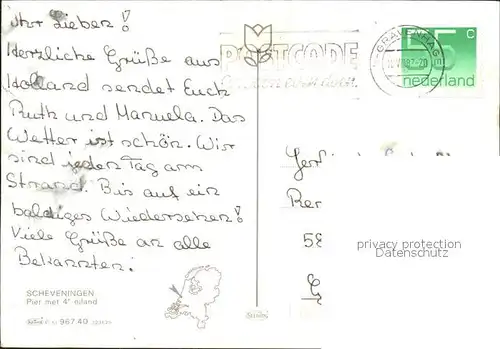 Ihr Lieben!
Herzliche Grüße aus
Holland sendet Euch
Ruth und Manuela. Das
Wetter ist schön. Wir
sind jeden Tag am
Strand. Bis auf ein
baldiges Wiedersehen!
Viele Grüße an alle
Bekannten!
SCHEVENINGEN
Pier met 4e eiland
967.40
POSTCODE
GRAVENHAGE
55 C
nederland
Ber
58
privacy protection
Datenschutz